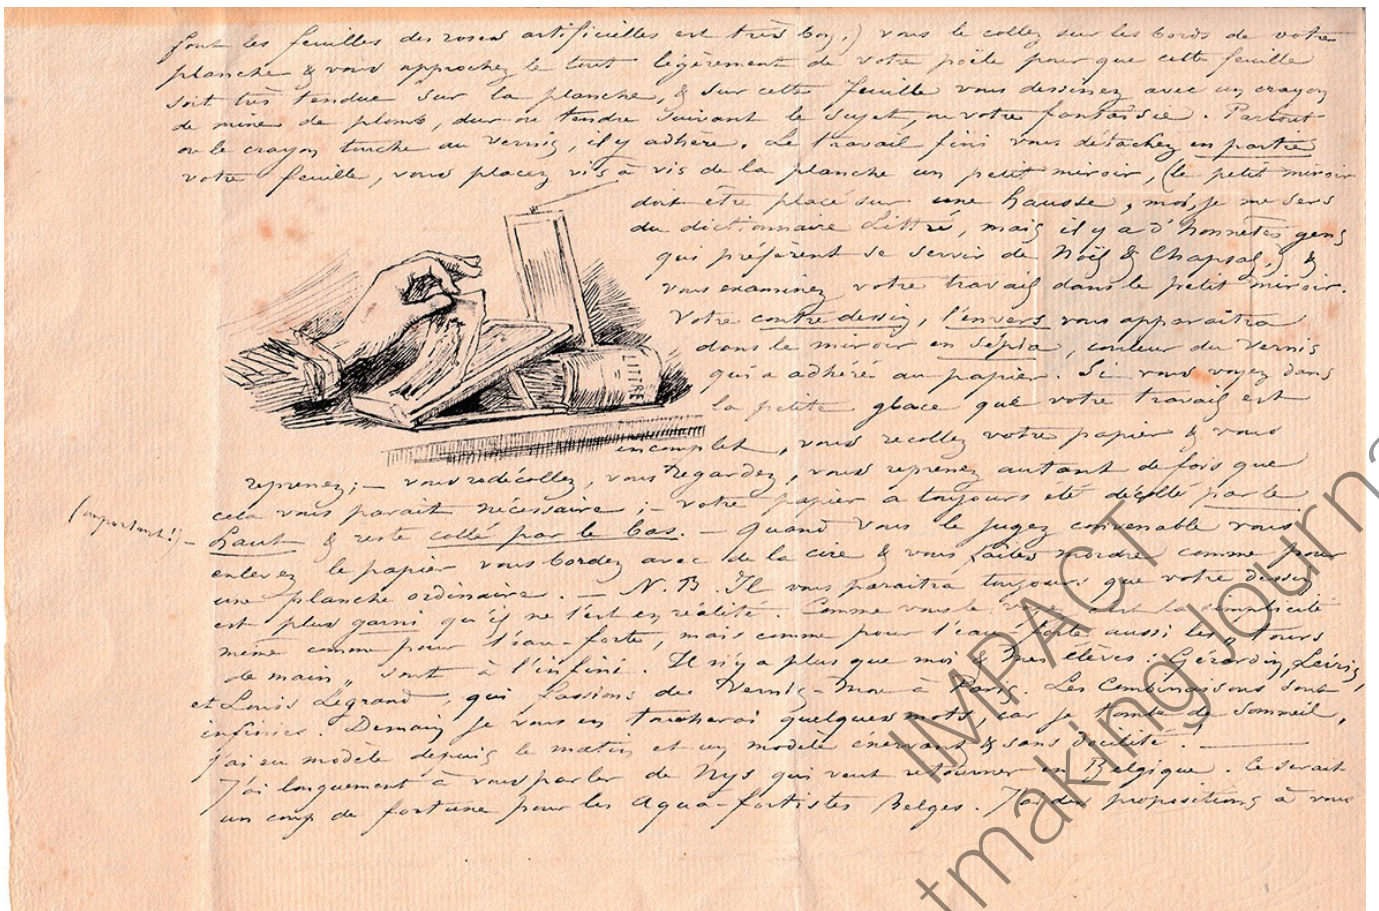 font les feuilles des roses artificielles est très bon,) vous le collez sur les bords de votre
planche & vous approchez le tout légèrement de votre poële pour que cette feuille
soit très tendue sur la planche, & sur cette feuille vous dessinez avec un crayon
de mine de plomb, dur ou tendre suivant le sujet, ou votre fantaisie. Partout
ou le crayon touche au vernis, il y adhère. Le travail fini vous détachez en partie
votre feuille, vous placez vis à vis de la planche un petit miroir, (le petit miroir
doit être placé sur une hausse, moi, je me sers
du dictionnaire Littré, mais il y a d'honnêtes gens
qui préfèrent se servir de Noël & Chapsal,) &
vous examinez votre travail dans le petit miroir.
Votre contre dessin, l'envers vous apparaitra
dans le miroir en sépia, couleur du vernis
qui a adhéré au papier. Si vous voyez dans
la petite glace que votre travail est
LITTRÉ
incomplet, vous recollez votre papier & vous
reprenez; — vous redécollez, vous regardez, vous reprenez autant de fois que
cela vous parait nécessaire; — votre papier a toujours été décollé par le
(important!) — haut & reste collé par le bas. — Quand vous le jugez convenable vous
enlevez le papier vous bordez avec de la cire & vous faites mordre comme pour
une planche ordinaire. — N.B. Il vous paraitra toujours que votre dessin
est plus garni qu'il ne l'est en réalité. Comme vous le voyez c'est la simplicité
même comme pour l'eau-forte, mais comme pour l'eau-forte aussi les „tours
de main„ sont à l'infini. Il n'y a plus que moi & mes élèves: Gérardin,
et Louis Legrand, qui fassions du Vernis-Mou à Paris. Les combinaisons sont
infinies. Demain je vous en toucherai quelques mots, car je tombe de sommeil,
j'ai eu modèle depuis le matin et un modèle énervant & sans docilité. —
J'ai longuement à vous parler de Nys qui veut retourner en Belgique. Ce serait
un coup de fortune pour les Aqua-fortistes Belges. J'ai des propositions à vous
IMPACT
tmaking Journ